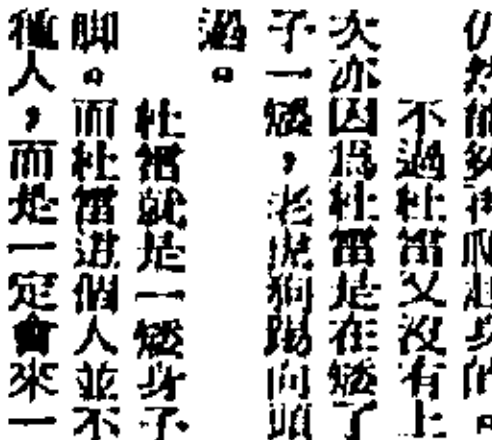 仍然能夠再爬起身的。
不過杜雷又沒有上
次亦因爲杜雷是在矮了
子一矮，老虎狗踢向頭
過。
杜雷就是一矮身子
脚。而杜雷這個人並不
種人，而是一定會來一